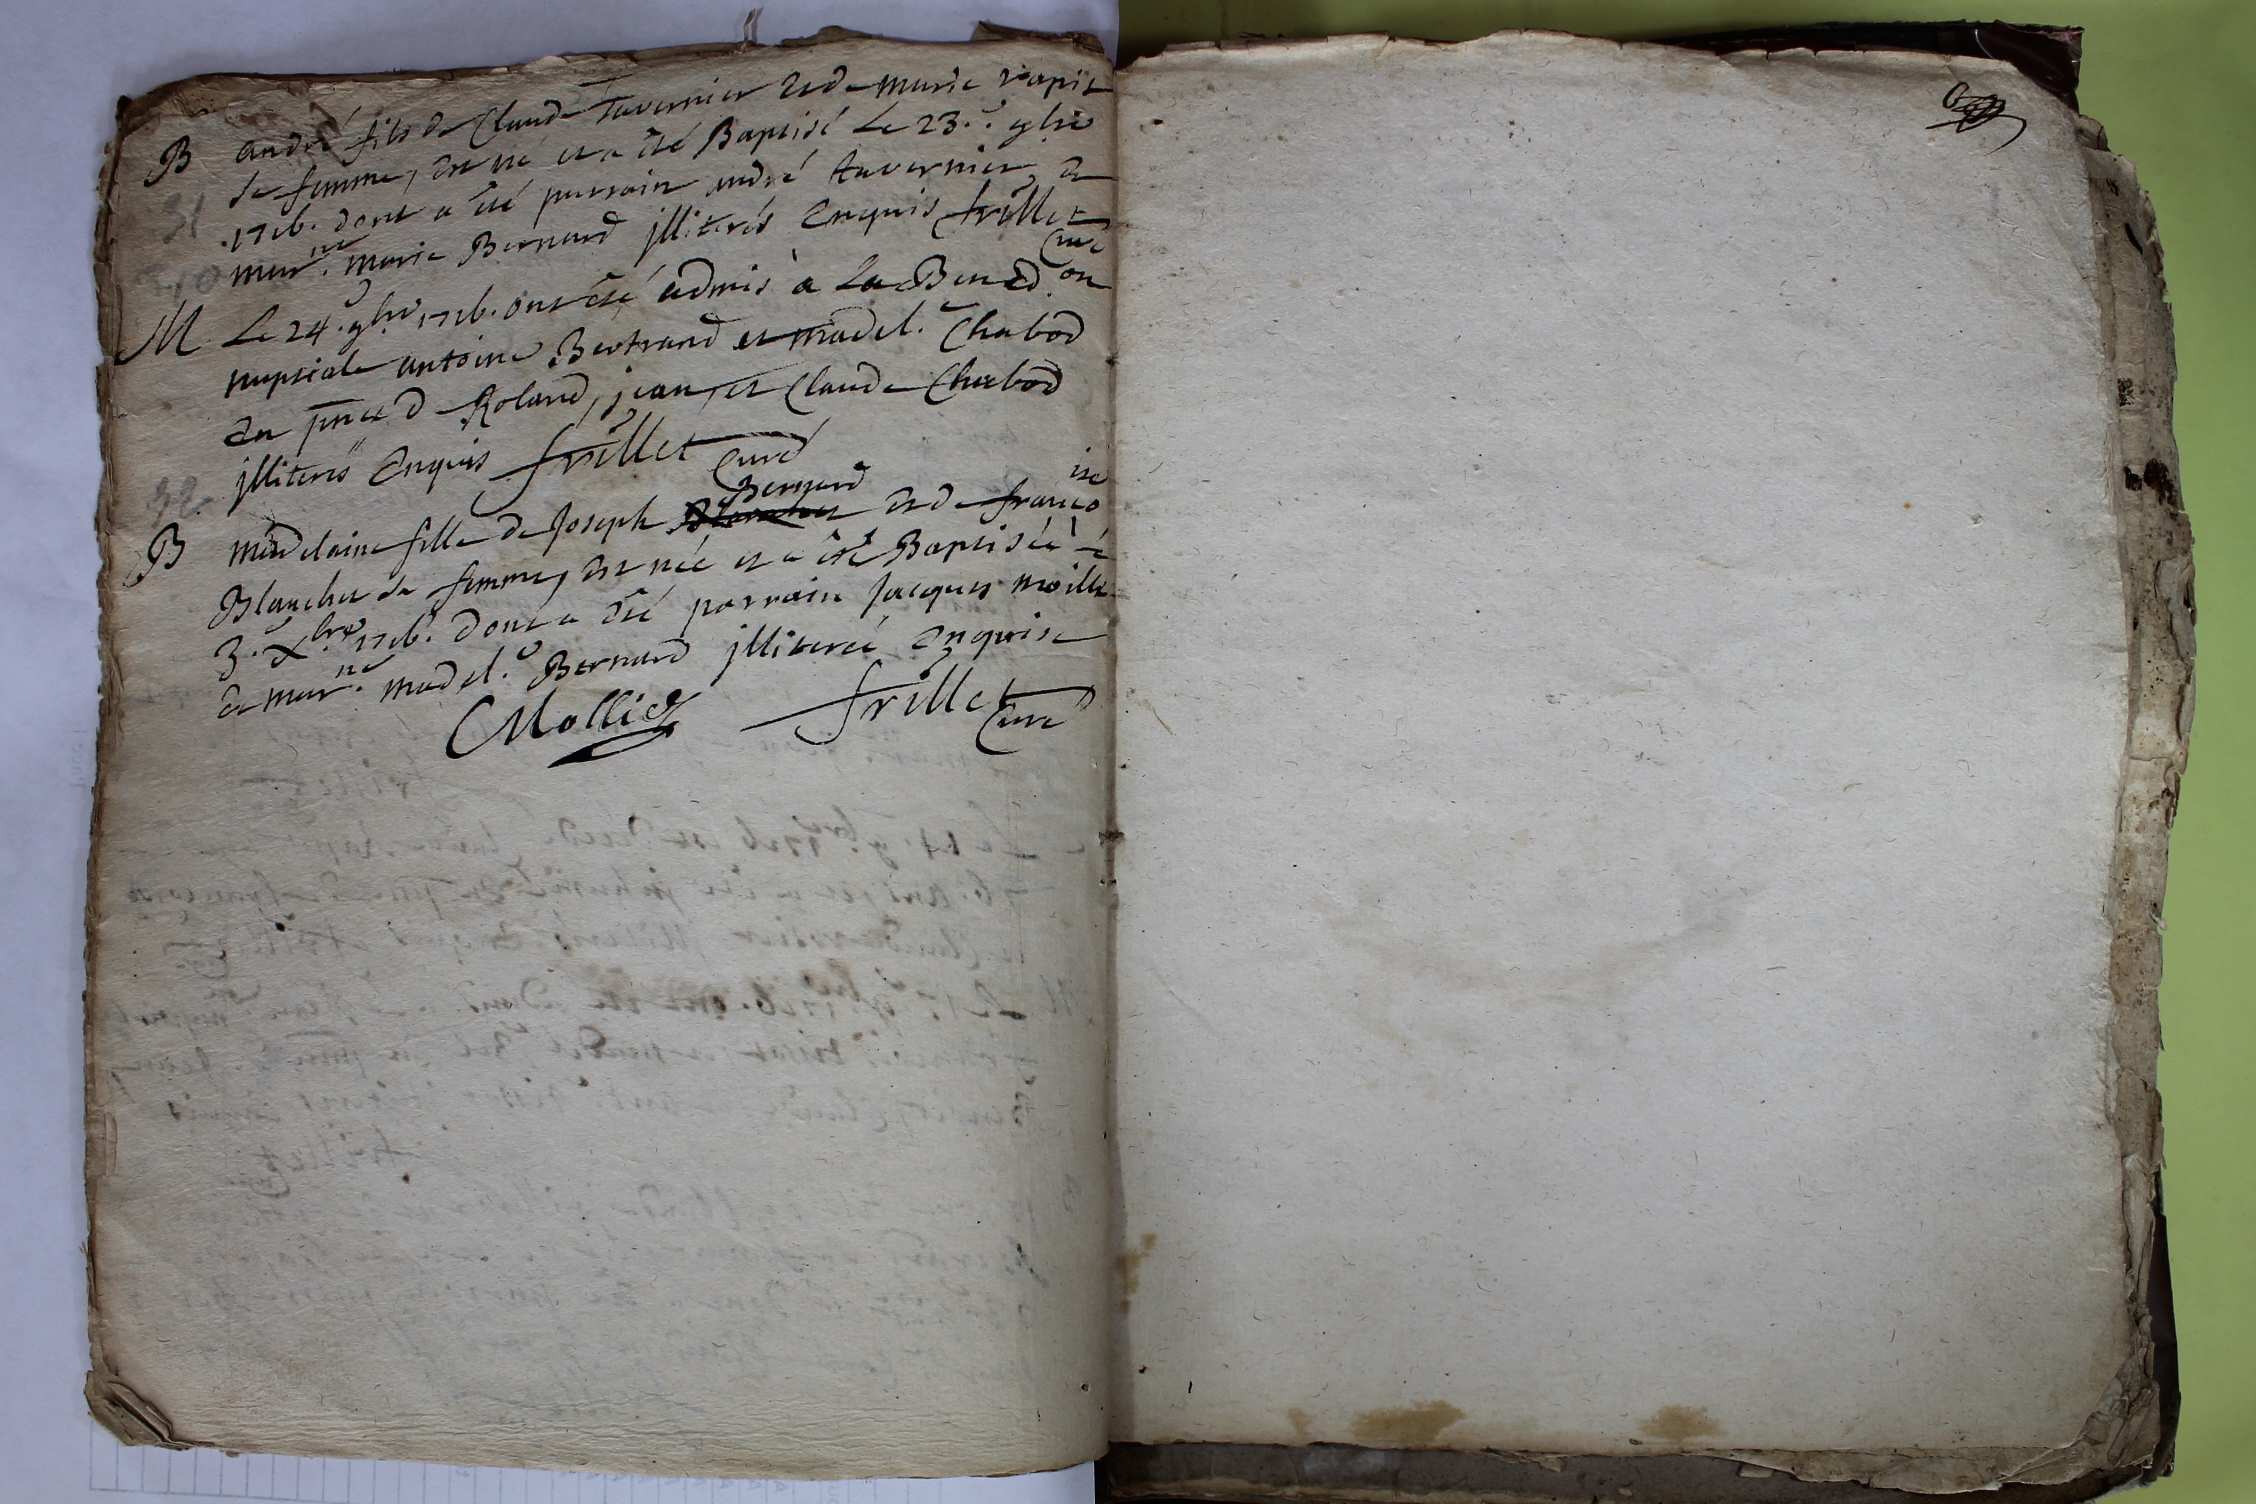 B andré fils de Claude Tavernier et de marie rapit
31 sa femme, est né et a été Baptisé Le 23.e 9bre
.1716. dont a été parrain andré tavernier, et
marne. marie Bernard jlliterés Enquis frillet
Curé
M Le 24.e 9bre 1716. ont été admis à La Bened.on
nuptiale antoine Bertrand et madel.e Chabod
en pnce d Roland, jean, et Claude Chabod
jlliterés Enquis frillet
Curé
32
Bernard
B Madelaine fille de Joseph Blanchet et de francoise
Blanchet sa femme, est née et a été Baptisée le
3.e Xbre 1716. dont a été parrain Jacques moille
et marne. madel.e Bernard jlliterée Enquise
CMollie frillet
Curé